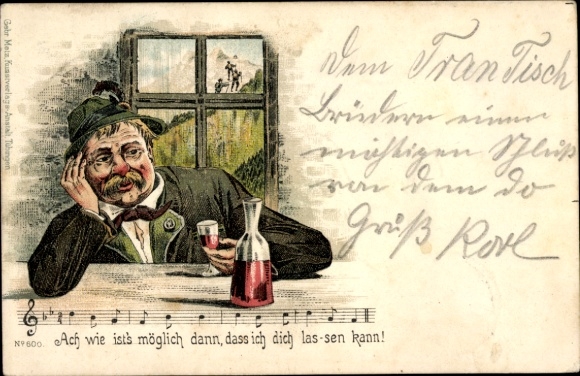 Dem FranTisch
Brüdern einen
mächtigen Schluß
von dem do
Gruß Karl
Gebr. Metz, Kunstverlags-Anstalt, Tübingen.
No 600.
Ach wie ist's möglich dann, dass ich dich las-sen kann!